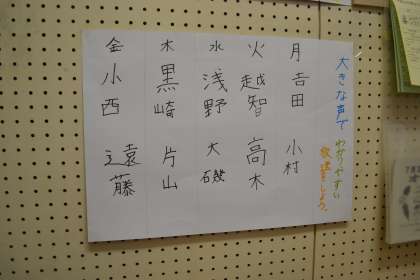 大きな声で
わかりやすい
放送をしよう。
月 吉田 小村
火 越智 高木
水 浅野 大磯
木 黒崎 片山
金 小西 遠藤